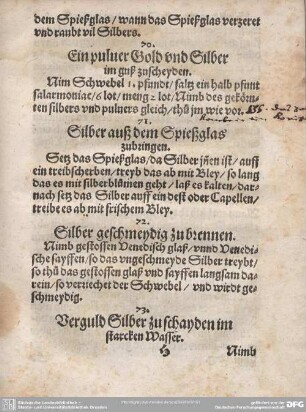 dem Spießglas / wann das Spießglas verzeret
vnd raubt vil Silbers.
70.
Ein puluer Gold vnd Silber
im guß zuscheyden.
Nim Schwebel 1. pfundt / saltz ein halb pfunt
salarmoniac / 6 lot / meng 2 lot. Nimb des gekörn-
ten silbers vnd puluers gleich / thů jm wie vor.
71.
Silber auß dem Spießglas
zubringen.
Setz das Spießglas / da Silber jñen ist / auff
ein treibscherben / treyb das ab mit Bley / so lang
das es mit silberblůmen geht / laß es kalten / dar-
nach setz das Silber auff ein dest oder Capellen /
treibe es ab mit frischem Bley.
72.
Silber geschmeydig zu brennen.
Nimb gestossen Venedisch glaß / vnnd Venedi-
sche sayffen / so das vngeschmeyde Silber treybt /
so thů das gestossen glaß vnd sayffen langsam da-
rein / so verriechet der Schwebel / vnd wirdt ge-
schmeydig.
73.
Verguld Silber zu schayden im
starcken Wasser.
Nimb